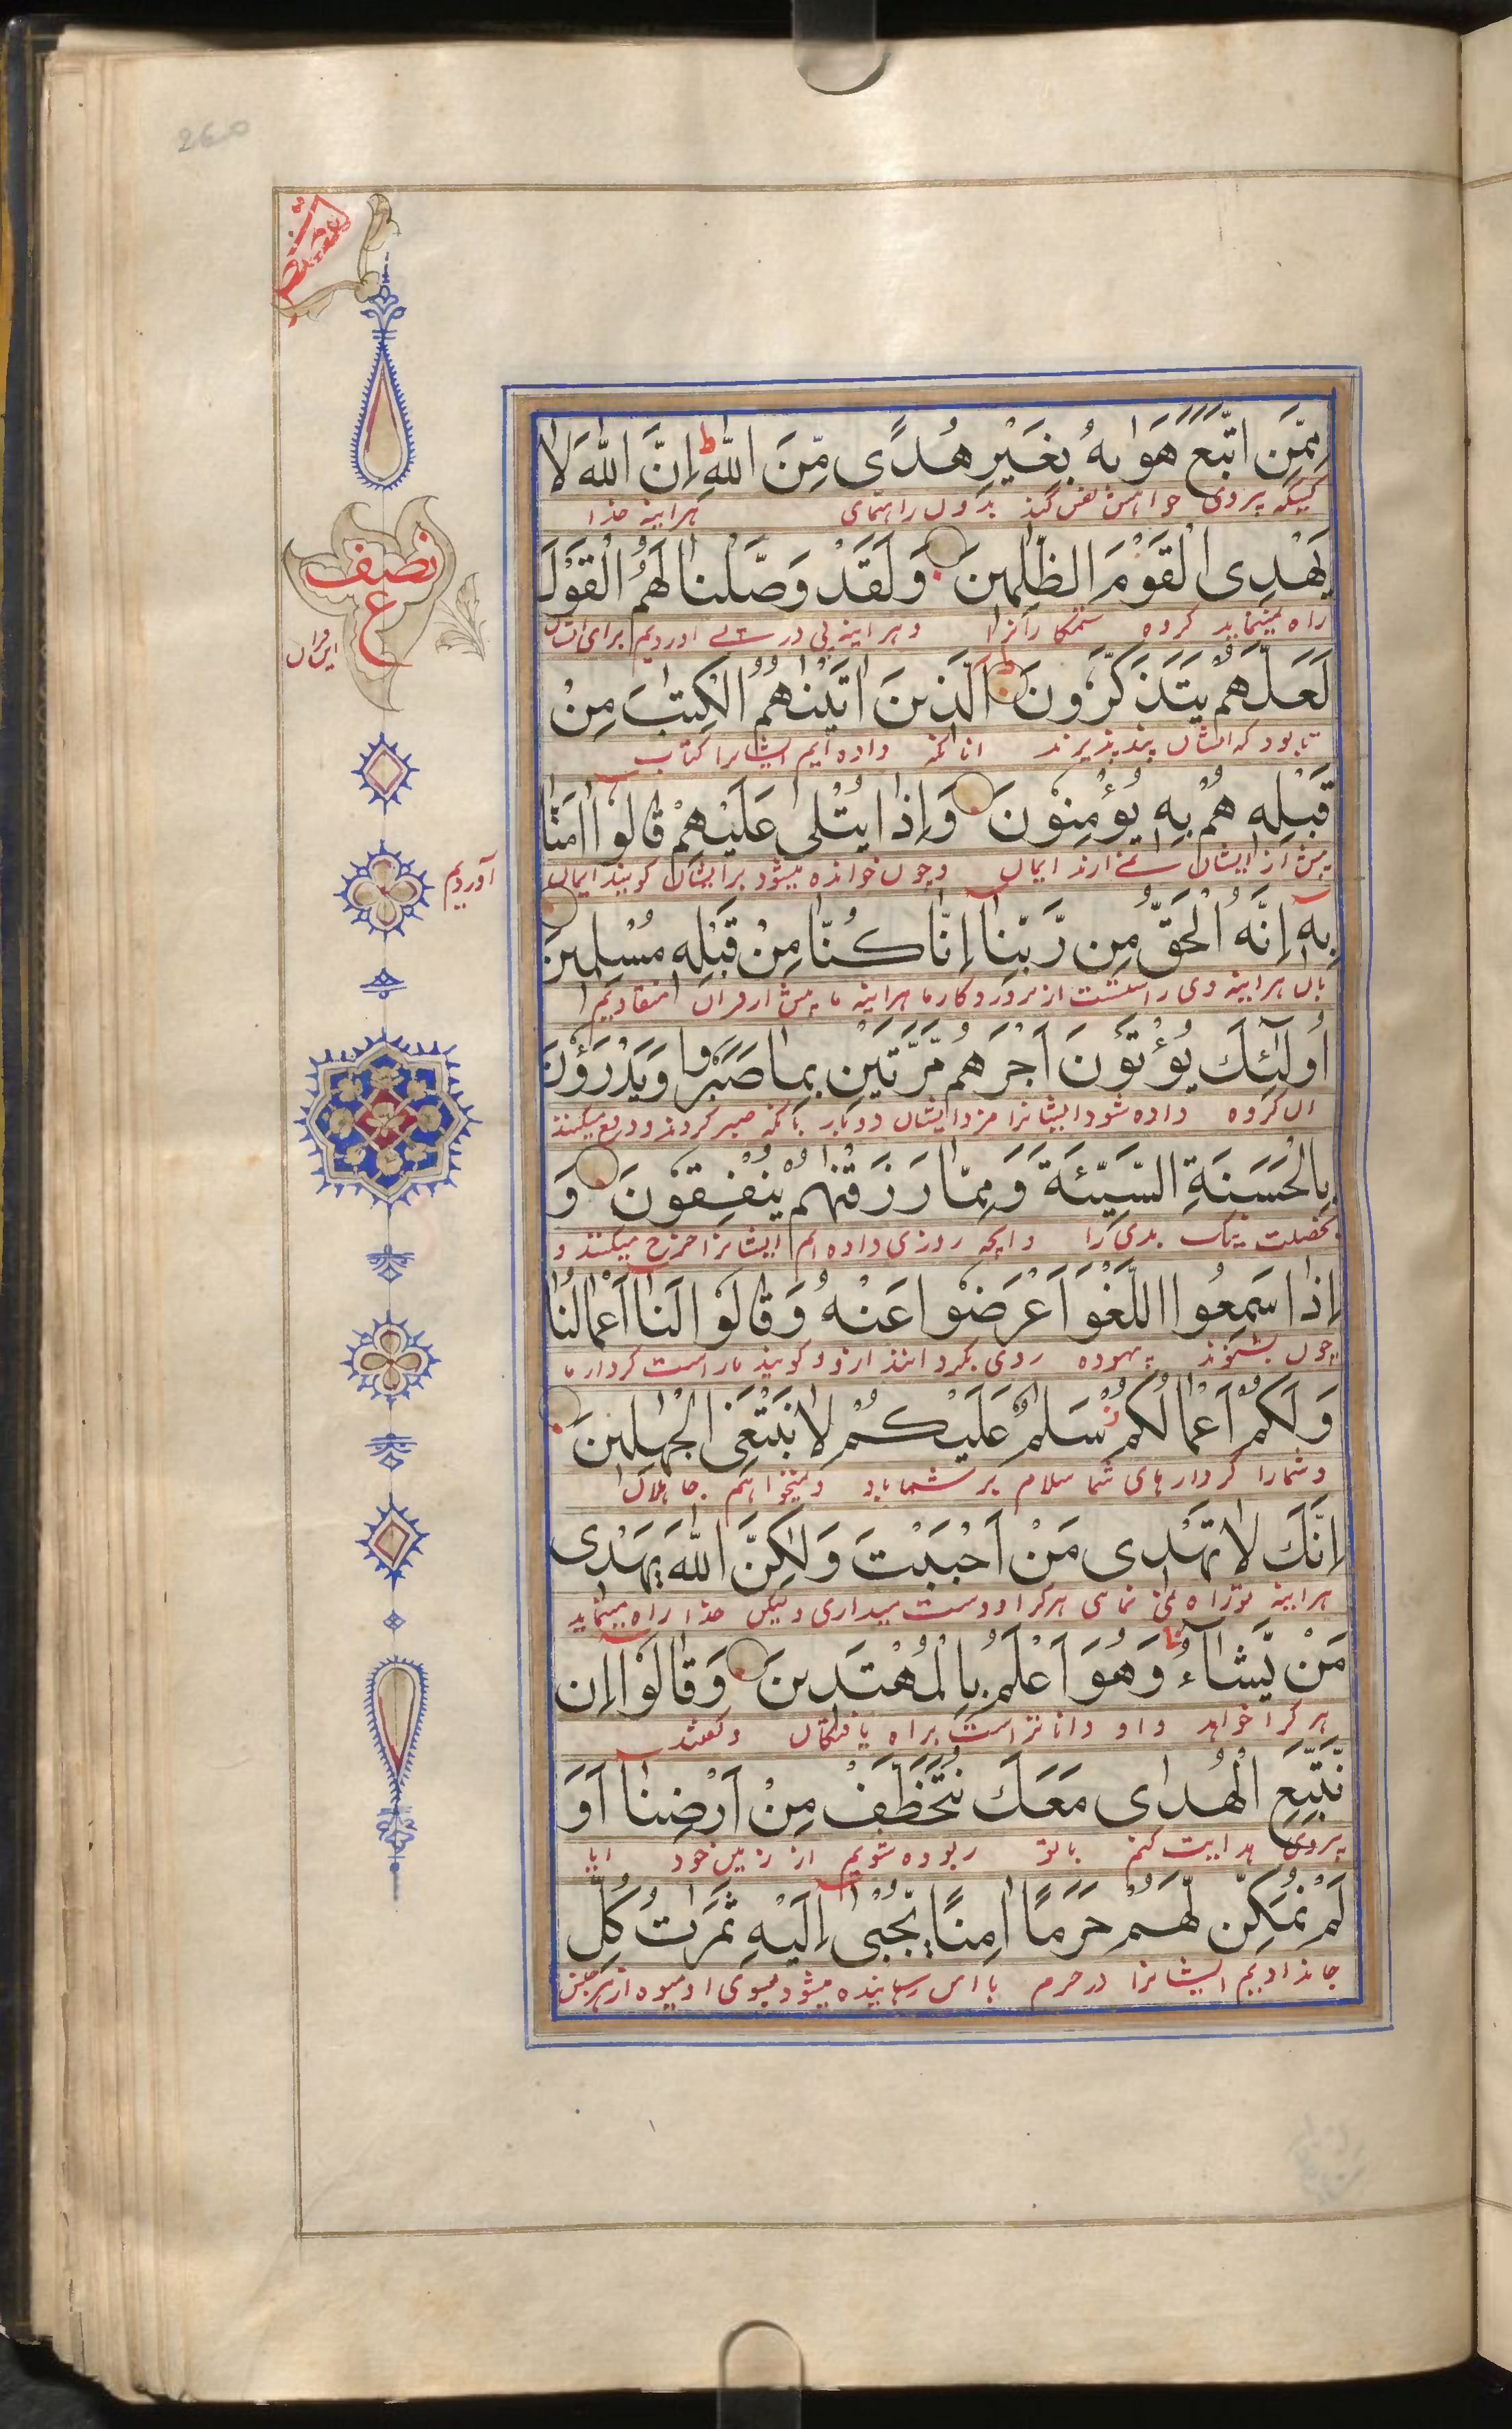 260
مِمَّنِ اتَّبَعَ هَوٰىهُ بِغَيْرِ هُدًى مِّنَ اللّٰهِ ط اِنَّ اللّٰهَ لَا
کسیکه پیروی خواهش نفس کند بدون راهنمای هراینه خدا
يَهْدِى الْقَوْمَ الظّٰلِمِينَ وَلَقَدْ وَصَّلْنَا لَهُمُ الْقَوْلَ
راه نمینماید کروه ستمکارانرا وهراینه پی در پی اوردیم برای
لَعَلَّهُمْ يَتَذَكَّرُونَ اَلَّذِينَ اٰتَيْنٰهُمُ الْكِتٰبَ مِنْ
تابود که ایشان پند پذیرند انانکه داده ایم ایشانرا کتاب
قَبْلِهِ هُمْ بِهِ يُؤْمِنُونَ وَاِذَا يُتْلٰى عَلَيْهِمْ قَالُوْا اٰمَنَّا
پیش از ایشان ایمان وچون خوانده میشود برایشان کویند ایمان
آوردیم
بِهِ اِنَّهُ الْحَقُّ مِن رَّبِّنَا اِنَّا كُنَّا مِنْ قَبْلِهِ مُسْلِمِينَ
بان هراینه وی راستست از پروردکار ما هراینه ما پیش از قران منقادیم
اُولٰٓئِكَ يُؤْتَوْنَ اَجْرَهُمْ مَّرَّتَيْنِ بِمَا صَبَرُوا وَيَدْرَؤُنَ
ان کروه داده شود ایشانرا مزد ایشان دوبار بانکه صبر کردند ودفع میکنند
بِالْحَسَنَةِ السَّيِّئَةَ وَمِمَّا رَزَقْنٰهُمْ يُنْفِقُوْنَ وَ
بخصلت نیک بدی را وانچه روزی داده ایم ایشانرا خرج میکنند و
اِذَا سَمِعُوا اللَّغْوَ اَعْرَضُوا عَنْهُ وَقَالُوا لَنَا اَعْمَالُنَا
چون بشنوند بیهوده روی بکردانند ازو وکویند ماراست کردار ما
وَلَكُمْ اَعْمَالُكُمْ سَلٰمٌ عَلَيْكُمْ لَا نَبْتَغِى الْجٰهِلِينَ
وشمارا کردارهای شما سلام بر شما باد ونمیخواهیم جاهلان
اِنَّكَ لَا تَهْدِى مَنْ اَحْبَبْتَ وَلٰكِنَّ اللّٰهَ يَهْدِى
هراینه تو راه نمی نمائی هرکرا دوست میداری ولیکن خدا راه مینماید
مَنْ يَّشَآءُ وَهُوَ اَعْلَمُ بِالْمُهْتَدِينَ وَقَالُوْا اِن
هرکرا خواهد واو داناتر است براه یافتکان وکفتند
نَّتَّبِعِ الْهُدٰى مَعَكَ نُتَخَطَّفْ مِنْ اَرْضِنَا اَوَ
پیروی هدایت کنم باتو ربوده شویم از زمین خود ایا
لَمْ نُمَكِّن لَّهُمْ حَرَمًا اٰمِنًا يُّجْبٰى اِلَيْهِ ثَمَرٰتُ كُلِّ
جاندادیم ایشانرا در حرم باامن رسانیده میشود بسوی او میوه از هر جنس
نصف
ع